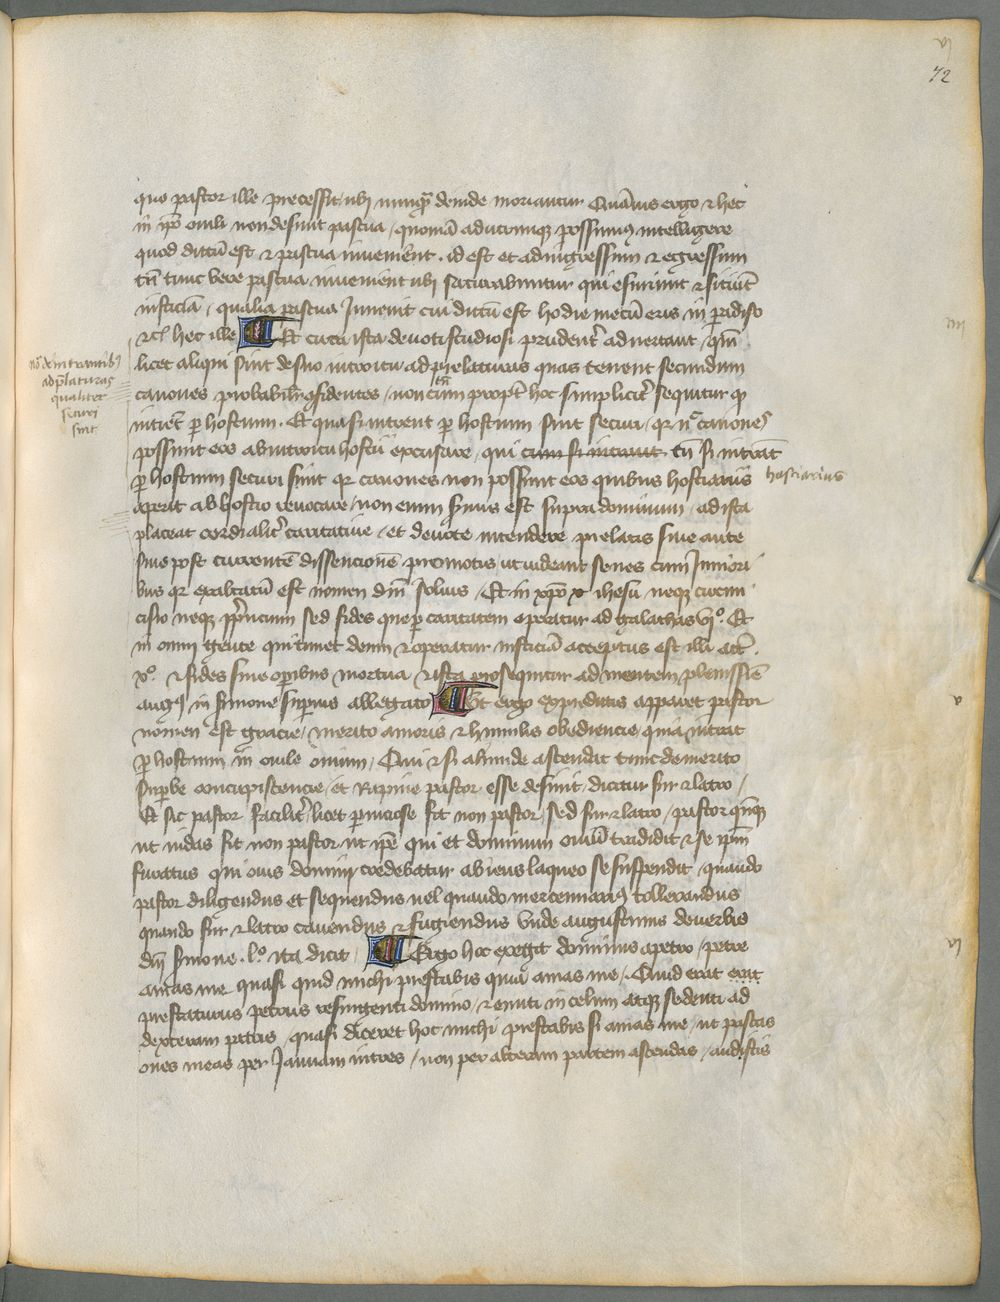 vj
72
quo pastor ille precessit ubi nunqͣ deinde moriantur Quāuis ergo ⁊ hec
in ip̄o ouili non desint pascua / quoniā ad utrumqꝫ possumꝰ intelligere
quod dictū est ⁊ pascua inuenient . id est et ad ingressum ⁊ egressum
tn̄ tunc vere pascua inuenient ubi saturabuntur qui esuriunt ⁊ sitiūt
iusticiā / qualia pascua Inuenit cui dictū est hodie mecū eris in paradiso
⁊cͣ hec ille Et circa ista deuoti studiosi prudent̾ aduertant / qm̄
licet aliqui sint de suo introitu ad prelaturas quas tenent secundum
canones / probabilit̾ ꝯfidentes / non tn̄ eciam propt̾ hoc simplicit̾ sequitur ꝙ
intrēt ꝑ hostium . Et quasi intrent ꝑ hostium sint securi / qꝛ n̄ canones
possunt eos ab introitu hostii excusare / qui cum si intrant tn̄ si intrāt
ꝑ hostium securi sunt qꝛ canones non possunt eos quibus hostiarius
hostiarius
aperit ab hostio reuocare / non enim seruus est supra dominum / ad ista
placeat cordialit̾ caritatiue / et deuote intendere prelatis siue ante
siue post currentē dissencionē promotis ut videant senes cum Iuniori
bus qꝛ exaltatū est nomen dn̄i solius / Et in xp̄o ihesu neqꝫ circum
cisio neqꝫ prepucium sed fides que ꝑ caritatem operatur ad galathas vjͦ. Et
in omni gente qui timet deum ⁊ operatur iusticiā acceptus est illi act̾ .
xͦ. ⁊ fides sine operibus mortua / ⁊ ista prosequitur ad mentem plenissīe
augꝰ in sermone superius allegato Ut ergo expeditus appareat pastor
nomen est gracie / merito amoris ⁊ humilis obediencie / quia intrat
ꝑ hostium in ouile ouium / Qui ⁊ si aliunde ascendat tunc demerito
superbe concupiscencie / et Rapine pastor esse desinit / dicitur fur ⁊ latro /
Et sic pastor facilit̾ licet perniciose fit non pastor / sed fur ⁊ latro / pastor qn̄qꝫ
ut iudas fit non pastor ut ip̄e qui et dominum ouiū tradidit ⁊ se ip̄m
furatus qui ouis domini credebatur abiens laqueo se suspendit / quando
pastor diligendus et sequendus uel quando mercennarius tollerandus
quando fur ⁊ latro cauendus ⁊ fugiendus Unde augustinus de verbis
dn̄i sermone . lͦ. ita dicit / Ergo hoc exegit dominus a petro / petre
amas me quasi quid michi prestabis quia amas me / Quid erat erit
prestaturus petrus resurgenti domino / ⁊ eunti in celum atqꝫ sedenti ad
dexteram patris / quasi diceret hoc michi prestabis si amas me / ut pascas
oues meas per Ianuam intres / non per alteram partem ascendas / audistis
ad p̄laturas
qualiter
securi
sint
iiij
v
vj